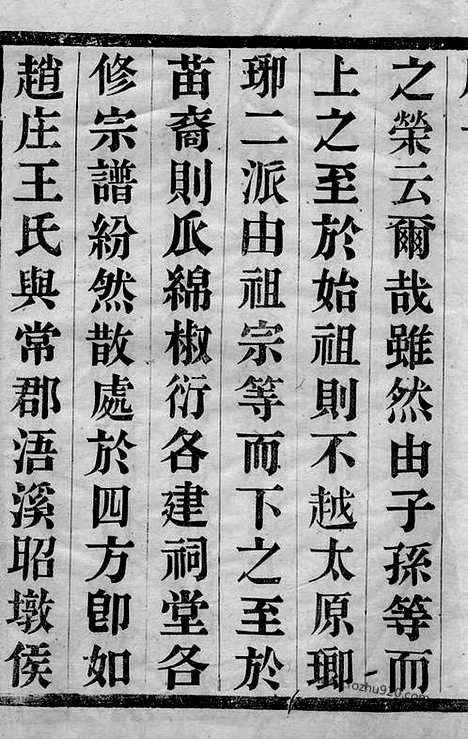 之榮云爾哉雖然由子孫等而
上之至於始祖則不越太原瑯
琊二派由祖宗等而下之至於
苗裔則瓜綿椒衍各建祠堂各
修宗譜紛然散處於四方卽如
趙庄王氏與常郡浯溪昭墩侯
rozhu920.com